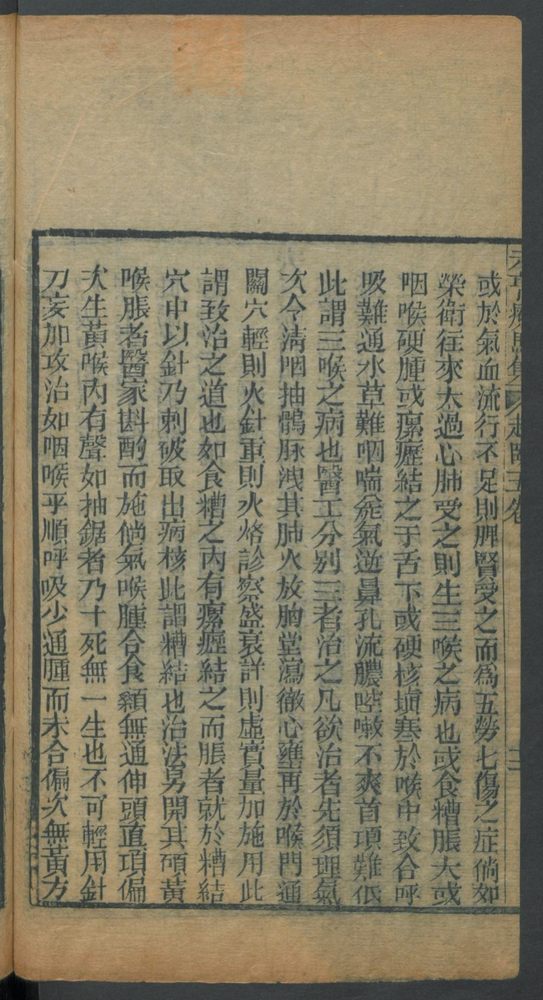 元亨療馬集 起臥 五卷 三
或於氣血流行不足則脾腎受之而爲五勞七傷之症倘如
榮衛往來太過心肺受之則生三喉之病也或食糟脹大或
咽喉硬腫或瘰癧結之于舌下或硬核塡塞於喉中致合呼
吸難通水草難咽喘麄氣逆鼻孔流膿啌嗽不爽首項難低
此謂三喉之病也醫工分别三者治之凡欲治者先須理氣
次令淸咽抽鶻脉洩其肺火放胷堂瀉徹心壅再於喉門通
關穴輕則火針重則火烙診察盛衰詳則虛實量加施用此
謂致治之道也如食糟之内有瘰癧結之而脹者就於糟結
穴中以針乃刺破取出病核此謂糟結也治法另開其碩黃
喉脹者醫家斟酌而施倘氣喉腫合食顙無通伸頭直項偏
次生黃喉内有聲如抽鋸者乃十死無一生也不可輕用針
刀妄加攻治如咽喉乎順呼吸少通腫而未合偏次無黃方